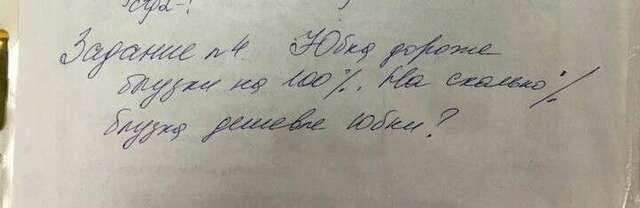 Задание №4. Юбка дороже
блузки на 100%. На сколько %
блузка дешевле юбки?